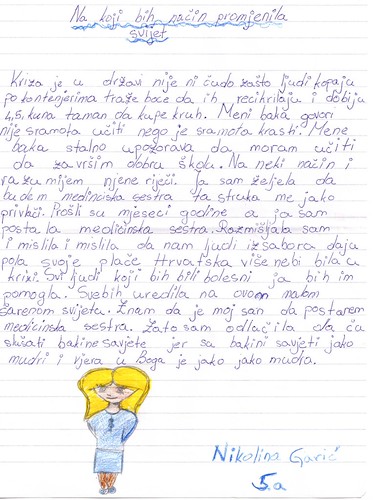 Na koji bih način promjenila
svijet
Kriza je u državi nije ni čudo zašto ljudi kopaju
po kontenjerima traže boce da ih recikrilaju i dobiju
4,5, kuna taman da kupe kruh. Meni baka govori
nije sramota učiti nego je sramota krasti. Mene
baka stalno upozorava da moram učiti
da završim dobru školu. Na neki način i
razumijem njene riječi. Ja sam željela da
budem medincisca sestra, ta struka me jako
privlači. Prošli su mjeseci godine a ja sam
postala medicinska sestra. Razmišljala sam
i mislila i mislila da nam ljudi iz sabora daju
pola svoje plače Hrvatska više nebi bila u
krizi. Svi ljudi koji bih bili bolesni ja bih im
pomogla. Svebih uredila na ovom
šarenom svijetu. Znam da je moj san da postanem
medicinska sestra. Zato sam odlačila da ću
slušati bakine savjete jer sa bakini savjeti jako
mudri i vjera u Boga je jako jako mudra.
Nikolina Garić
5.a